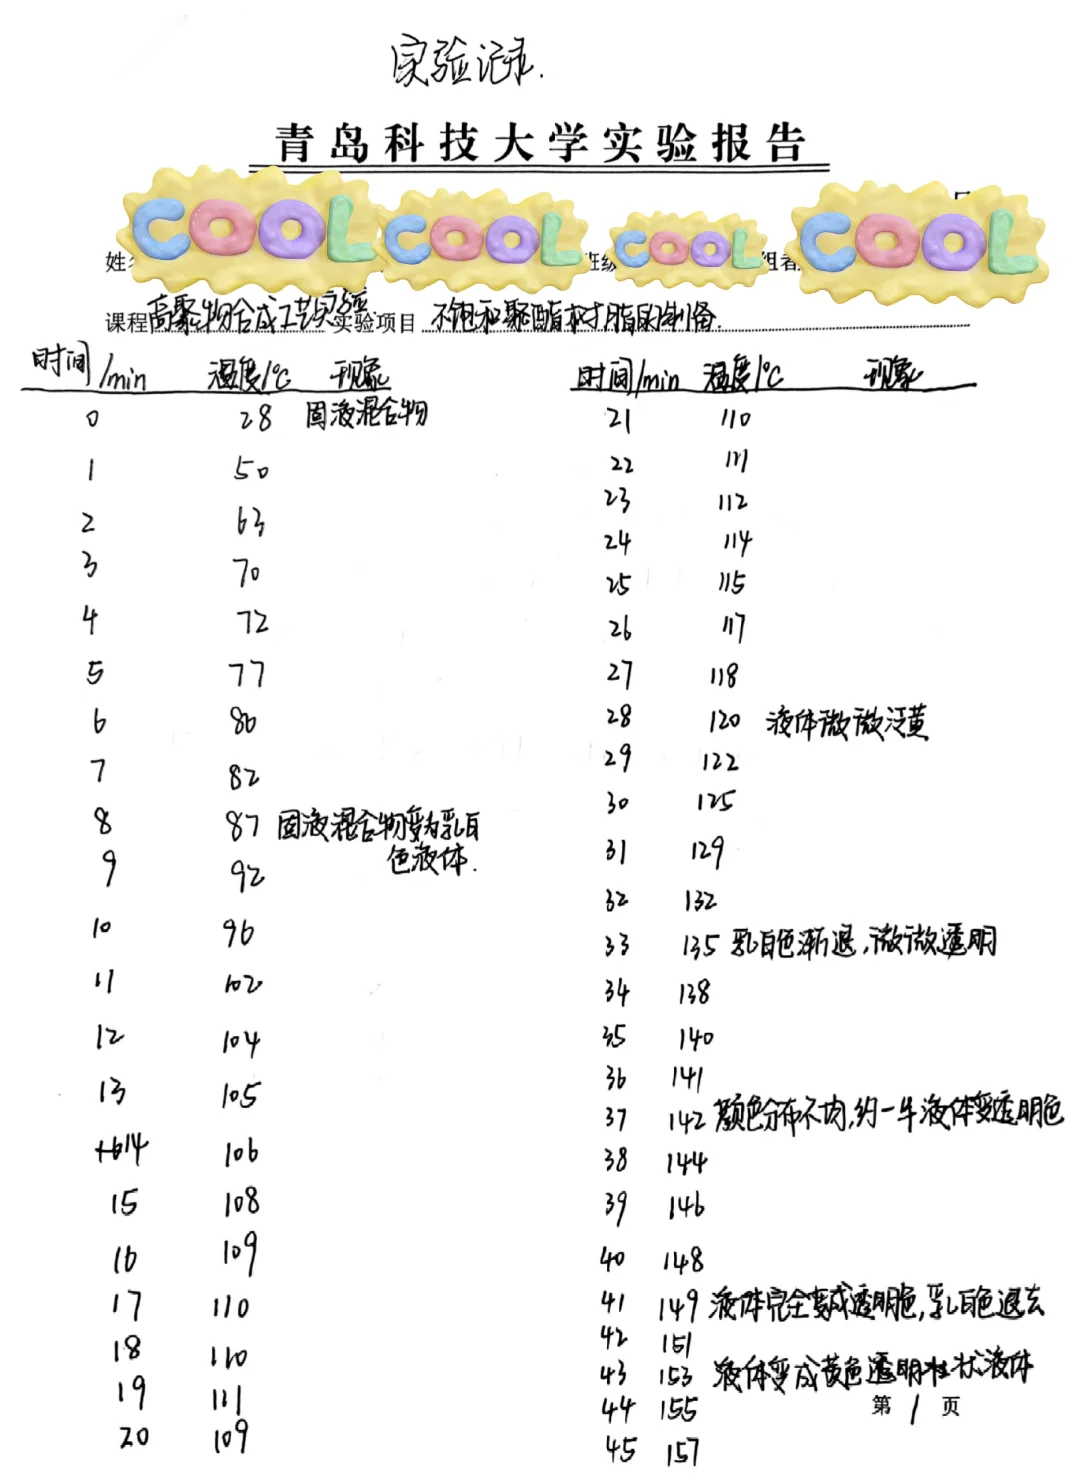 实验记录.
青岛科技大学实验报告
COOL COOL COOL COOL
姓 班级 组者
课程 高聚物合成工艺实验 实验项目 不饱和聚酯树脂的制备
时间/min 温度/℃ 现象
0 28 固液混合物
1 50
2 63
3 70
4 72
5 77
6 80
7 82
8 87 固液混合物变为乳白
色液体.
9 92
10 96
11 102
12 104
13 105
14 106
15 108
16 109
17 110
18 110
19 111
20 109
时间/min 温度/℃ 现象
21 110
22 111
23 112
24 114
25 115
26 117
27 118
28 120 液体微微泛黄
29 122
30 125
31 129
32 132
33 135 乳白色渐退,微微透明
34 138
35 140
36 141
37 142 颜色分布不均,约一半液体变透明色
38 144
39 146
40 148
41 149 液体完全变成透明色,乳白色退去
42 151
43 153 液体变成黄色透明 状液体
44 155
45 157
第 1 页